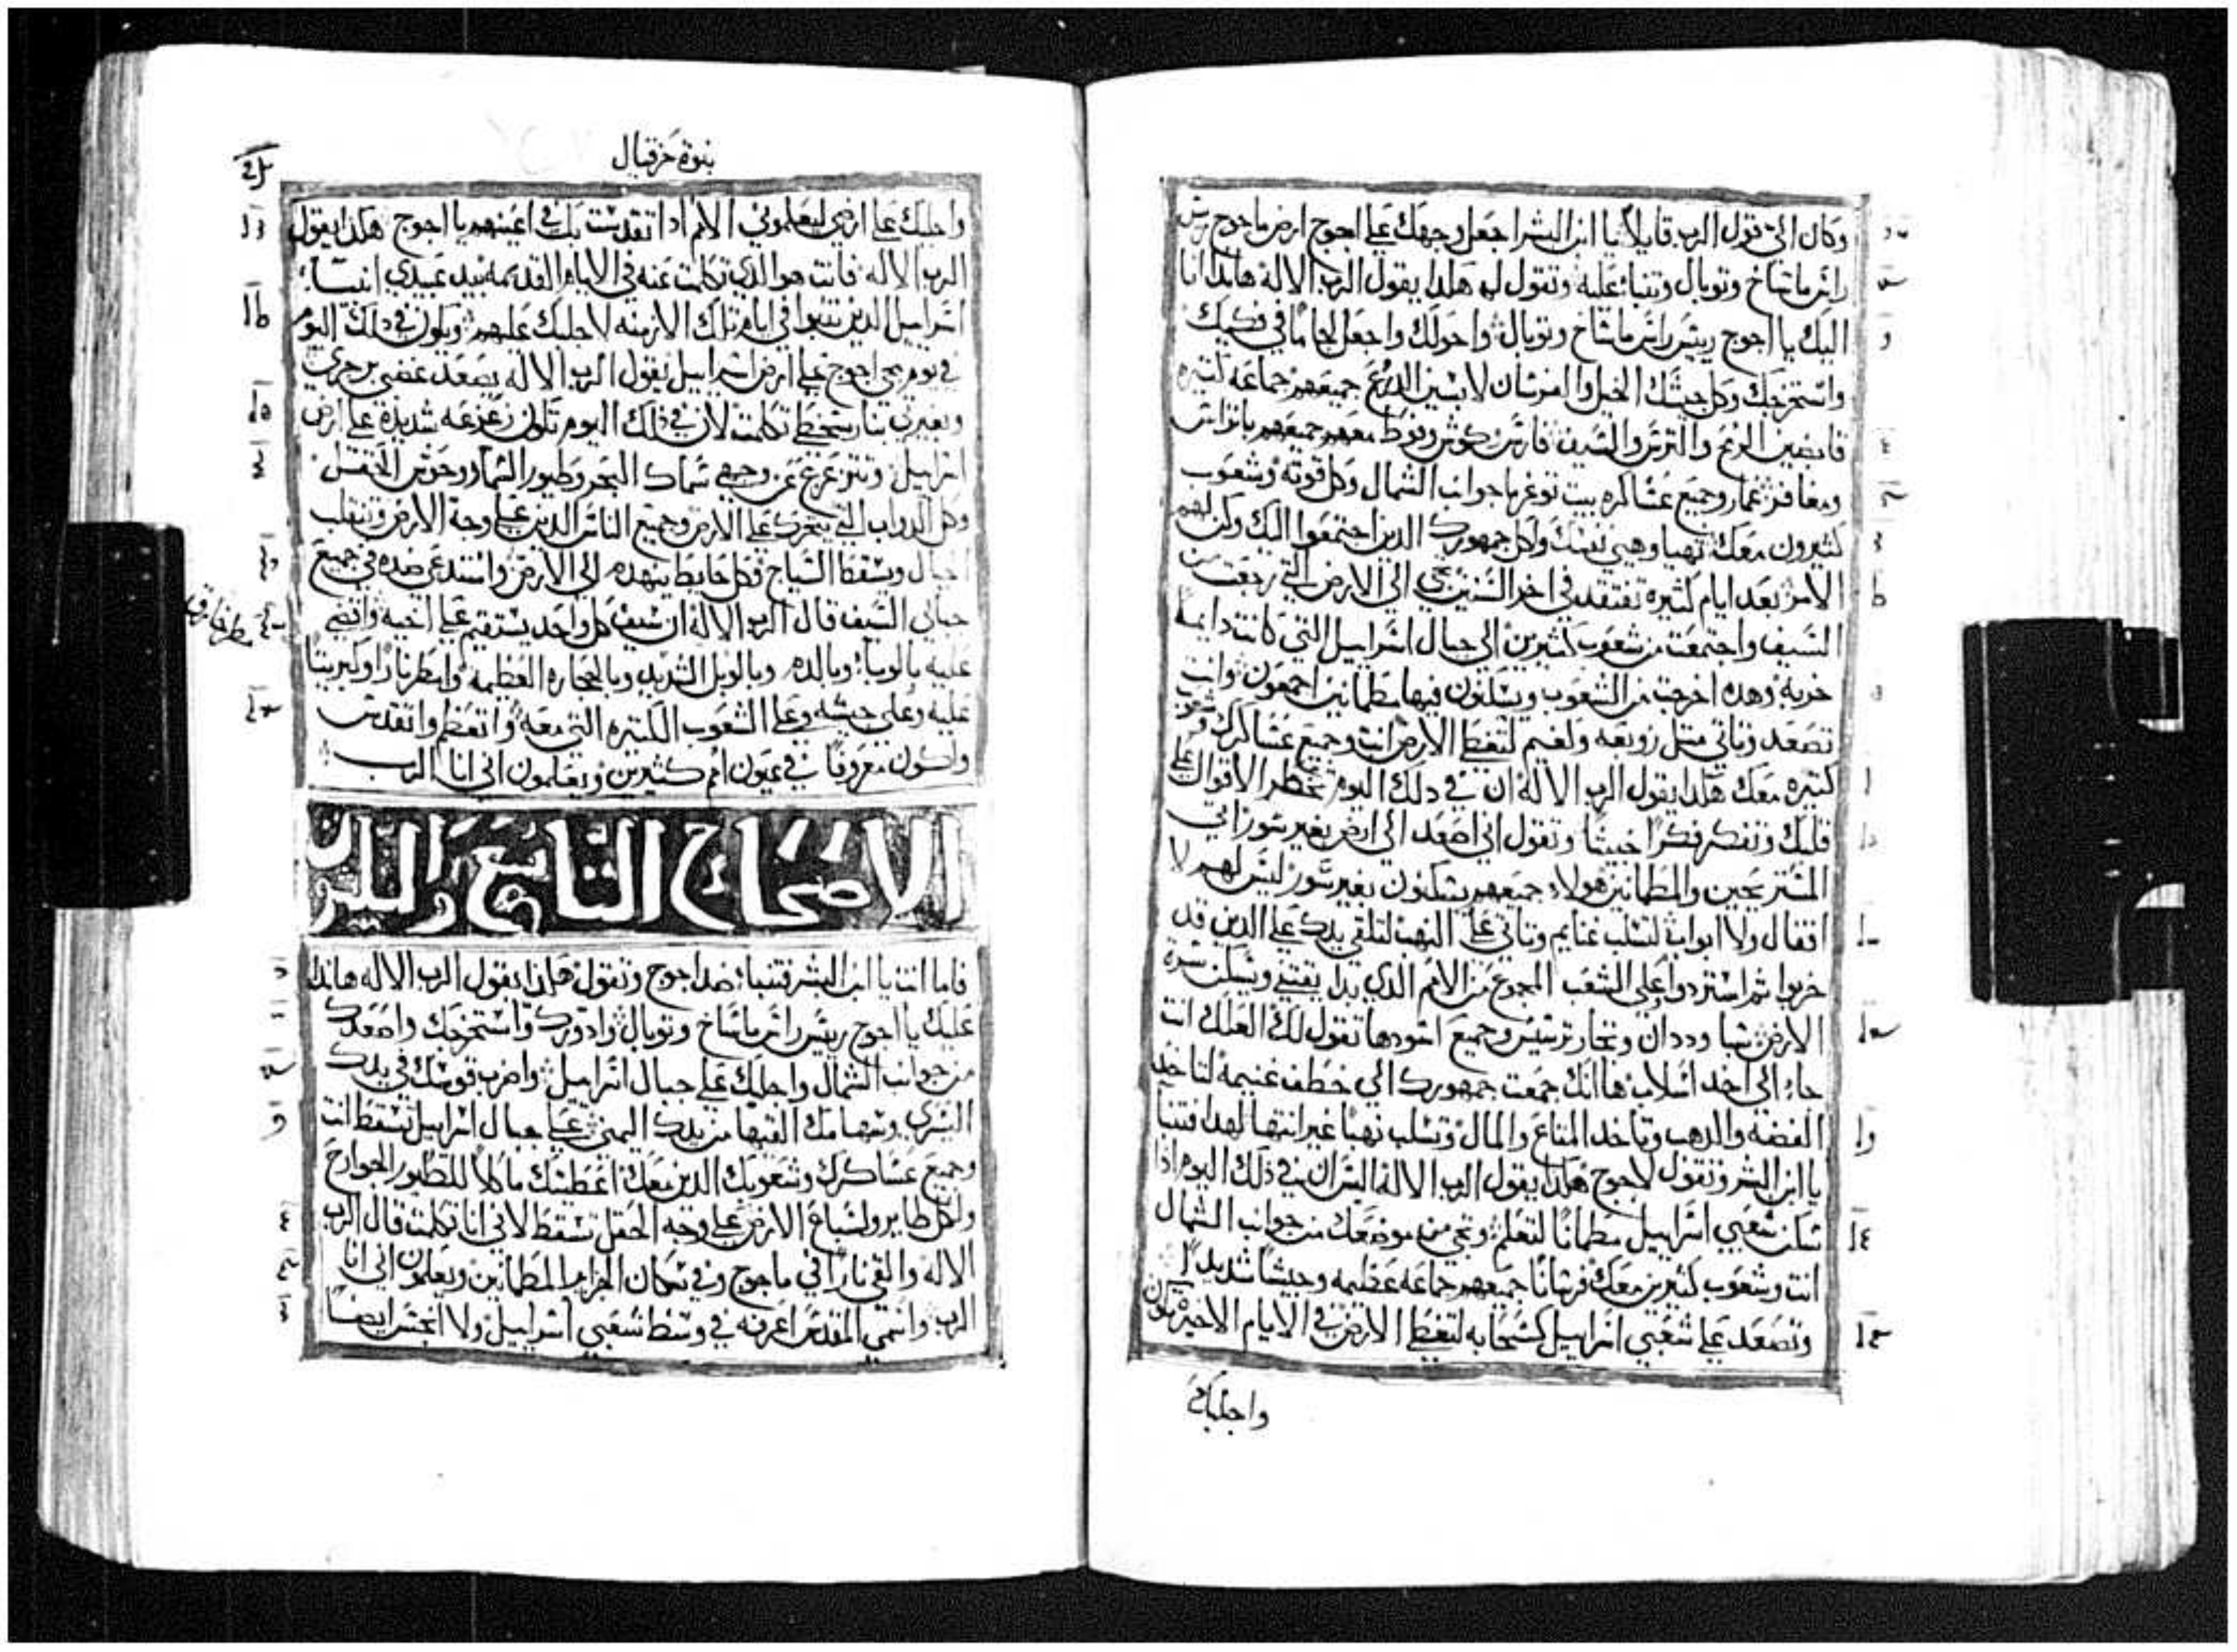 وكان الي قول الرب قايلاً يا ابن البشر اجعل وجهك علي اجوج ارض ماجوج ريس
راس ماشاخ وتوبال وتنباء عليه وتقول له هكذا يقول الرب الاله هانذا انا
اليك يا اجوج رييس راس ماشاخ وتوبال واحولك واجعل لجاماً في فكيك
واستخرجك وكل جيشك الخيل والفرسان لابسين الدروع جميعهم جماعه كثيره
قابضين الرمح والترس والسيف فارس كوش وفوط معهم جميعهم باتراس
ومغافر غمار وجميع عساكره بيت توغرما جوانب الشمال وكل قوته وشعوب
كثيرون معك تهيا وهيي نفسك وكل جمهورك الذين اجتمعوا اليك وكن لهم
الامر بعد ايام كثيره تفتقد في اخر السنين تجي الي الارض التي رجعت من
السيف واجتمعت من شعوب كثيرين الي جبال اسراييل التي كانت دايمه
خربه وهده اخرجت من الشعوب ويسكنون فيها مطمانين اجمعون وانت
تصعد وتاتي مثل زوبعه ولغيم لتغطي الارض انت وجميع عساكرك وشعوب
كثيره معك هكدا يقول الرب الاله ان في دلك اليوم تخطر الاقوال علي
قلبك وتفكر فكراً خبيثاً وتقول اني اصعد الي ارض بغير سور اتي
المستريحين والمطمانين هولاء جميعهم يسكنون بغير سور ليس لهم لا
اقفال ولا ابواب لتسلب غنايم وتاتي علي النهب لتلقي يدك علي الدين قد
خربوا ثم استردوا وعلي الشعب المجموع من الامم الدي بدا يقتني ويسكن سرة
الارض شبا وددان وتجار ترسيس وجميع اسودها تقول لك العلك انت
جاء الي اخد اسلاب ها انك جمعت جمهورك الي خطف غنيمه لتاخد
الفضه والدهب وتاخد المتاع والمال وتسلب نهباً غير انتها لهدا فتنبا
يا ابن البشر وتقول لاجوج هكدا يقول الرب الاله اليس ان في ذلك اليوم اذا
سكن شعبي اسراييل مطماناً لتعلم وتجي من موضعك من جوانب الشمال
انت وشعوب كثيرين معك فرساناً جميعهم جماعه عظيمه وجيشاً شديداً
وتصعد علي شعبي اسراييل كسحابه لتغطي الارض في الايام الاخيره تكون
واجلبك
نبوة حزقيال
واجلبك علي ارضي ليعلموني الامم ادا تقدست بك في اعينهم يا اجوج هكدا يقول
الرب الاله فانت هو الدي تكلمت عنه في الايام القديمه بيد عبيدي انبياء
اسراييل الدين تنبوا في ايام تلك الازمنه لاجلبك عليهم ويكون في دلك اليوم
في يوم يجي اجوج علي ارض اسراييل يقول الرب الاله يصعد غضبي برجزي
وبغيرتي بنار سخطي تكلمت لان في ذلك اليوم تكون زعزعه شديدة علي ارض
اسراييل وتتزعزع عن وجهي سماك البحر وطيور السماء ووحوش الحقل
وكل الدواب التي تتحرك علي الارض وجميع الناس الدين علي وجه الارض وتنقلب
الجبال ويسقط السياج وكل حايط ينهدم الي الارض واستدعي ضده في جميع
جبالي السيف قال الرب الاله ان سيف كل واحد يستقيم علي اخيه واقضي
عليه بالوباء وبالدم وبالوبل الشديد وبالحجاره العظيمه وامطر ناراً وكبريتاً
عليه وعلي جيشه وعلي الشعوب الكثيره التي معه واتعظم واتقدس
واكون معروفاً في عيون امم كثيرين ويعلمون اني انا الرب
الاصحاح التاسع والثلثون
فاما انت يا ابن البشر فتنباء ضد اجوج وتقول هكذا يقول الرب الاله هانذا
عليك يا اجوج رييس راس ماشاخ وتوبال وادورك واستخرجك واصعدك
من جوانب الشمال واجلبك علي جبال اسراييل واضرب قوسك في يدك
اليسري وسهامك القيها من يدك اليمني علي جبال اسراييل تسقط انت
وجميع عساكرك وشعوبك الذين معك اعطيتك ماكلاً للطيور الجوارح
ولكل طاير ولسباع الارض علي وجه الحقل تسقط لاني انا تكلمت قال الرب
الاله والقي ناراً في ماجوج وفي سكان الجزاير المطمانين ويعلمون اني انا
الرب واسمي المقدس اعرفه في وسط شعبي اسراييل ولا انجس ايضاً